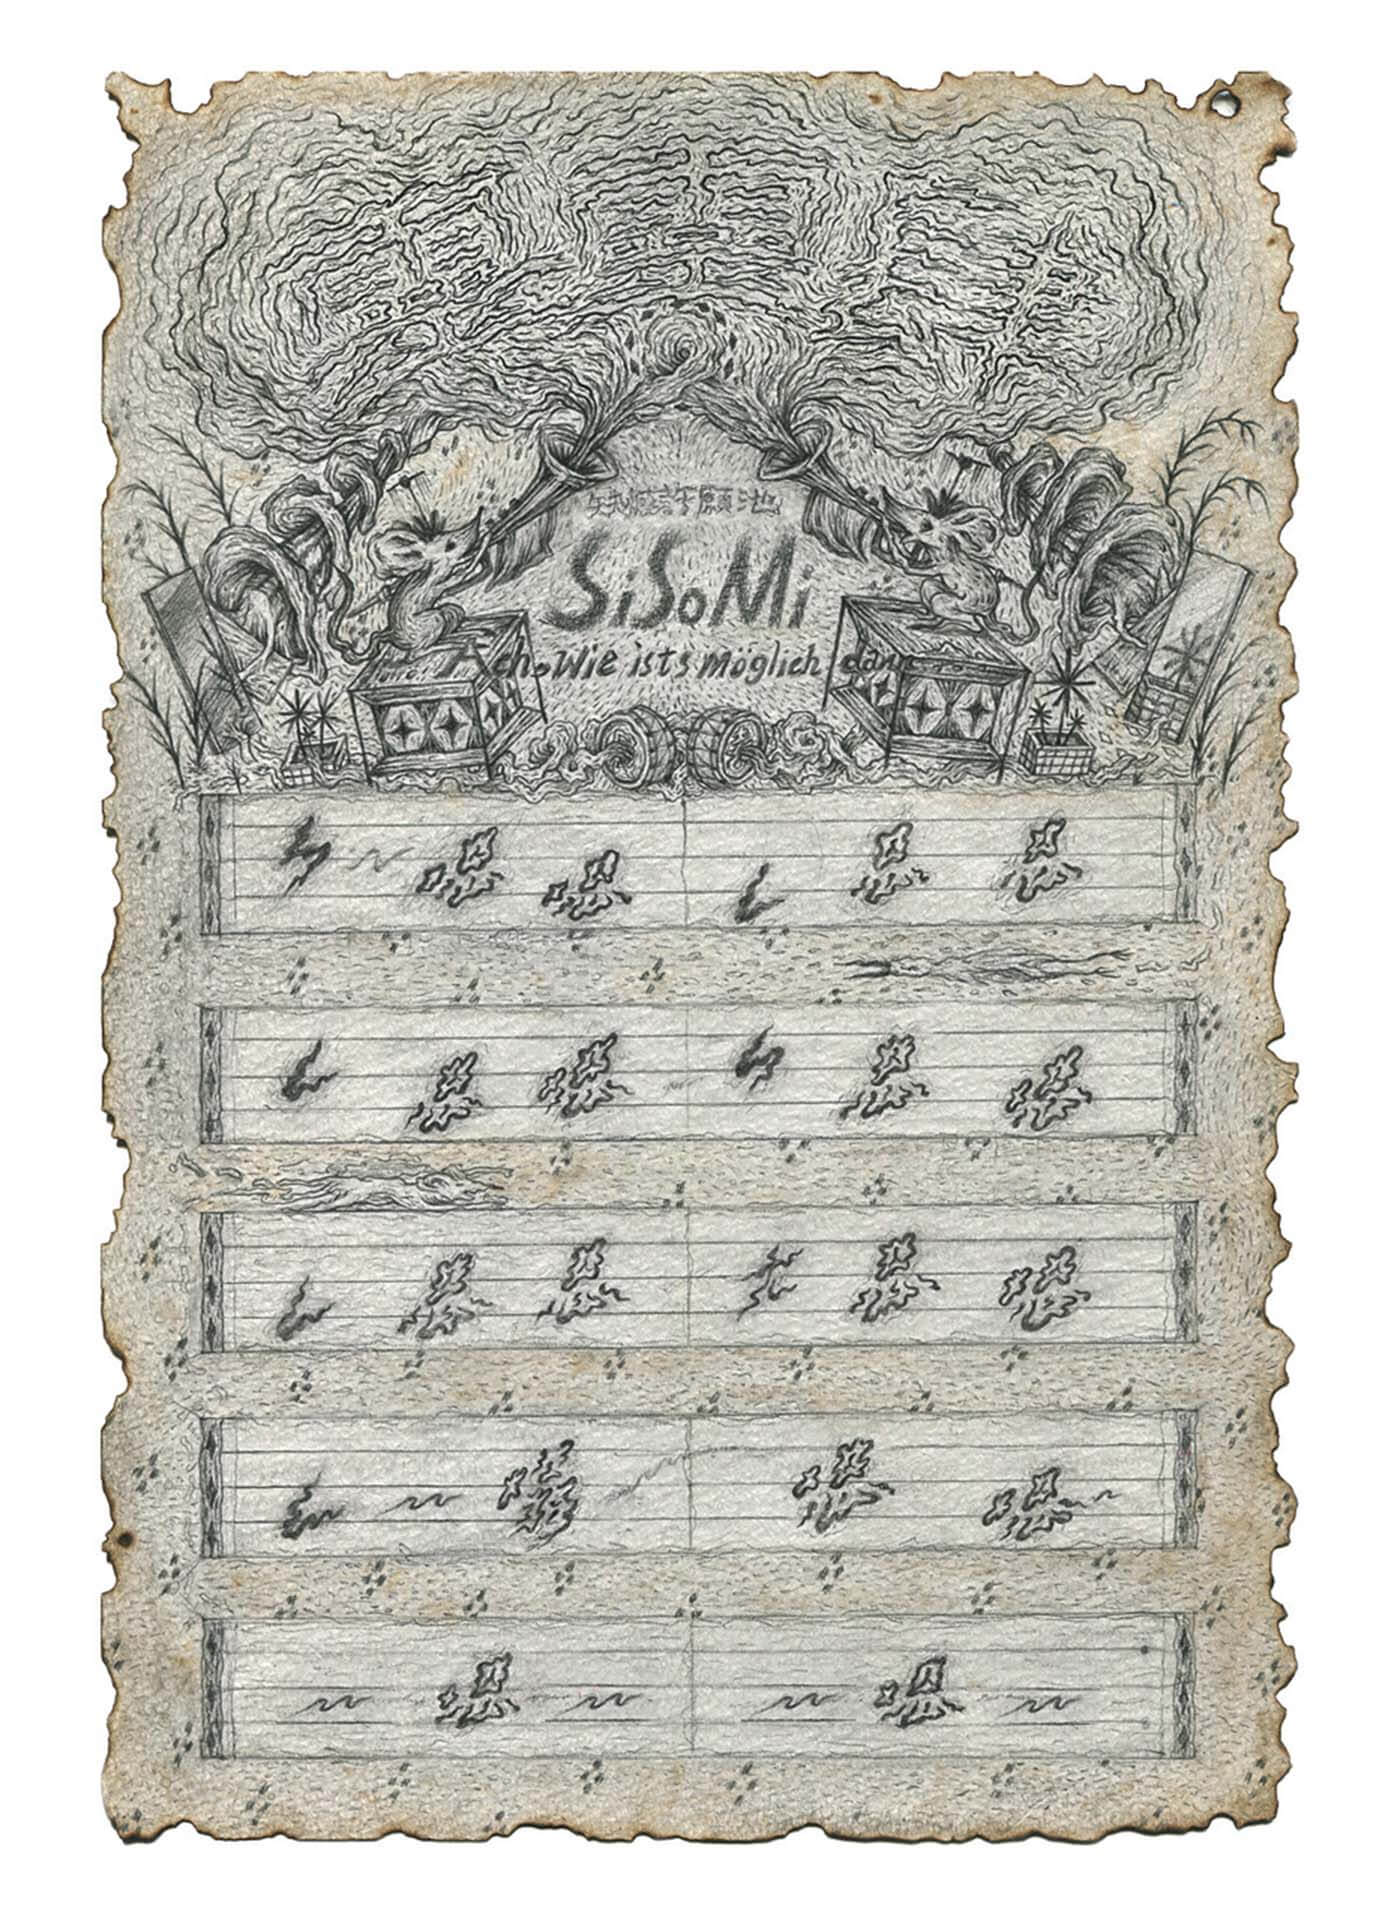 許願池
SiSoMi
ch.Wie ists möglich dann